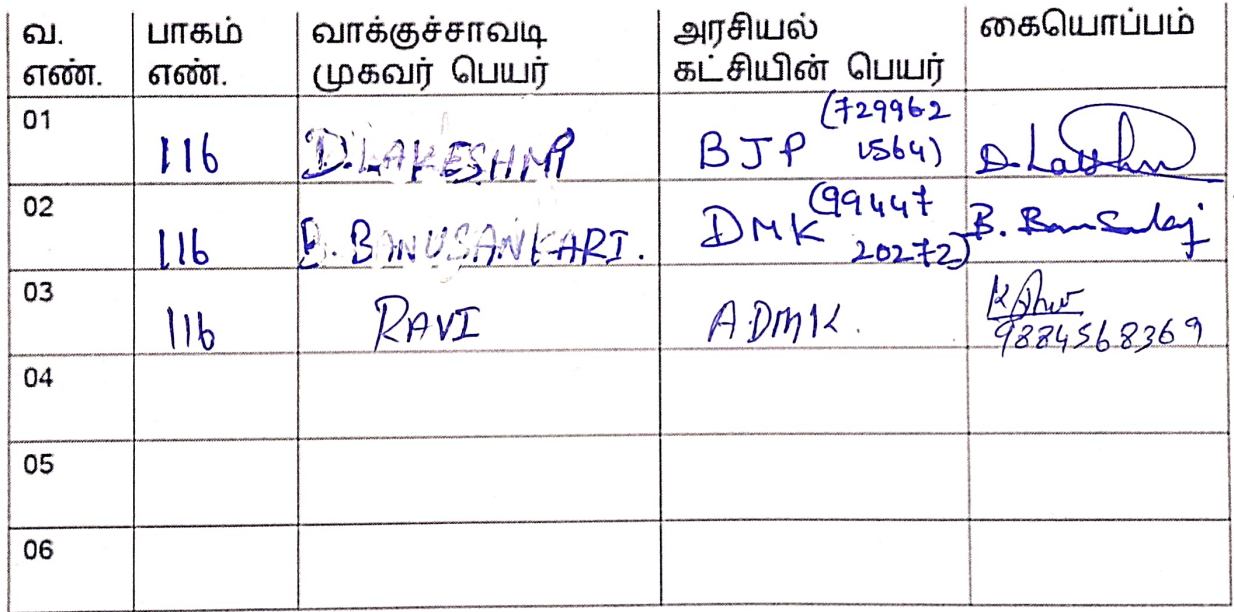 வ. எண். பாகம் எண். வாக்குச்சாவடி முகவர் பெயர் அரசியல் கட்சியின் பெயர் கையொப்பம்
01 116 D.LAKESHMI BJP (729962 1564) D. Lakshmi
02 116 B. BANUSANKARI. DMK (99447 20272)
03 116 RAVI A.DMK. 9884568369
04
05
06